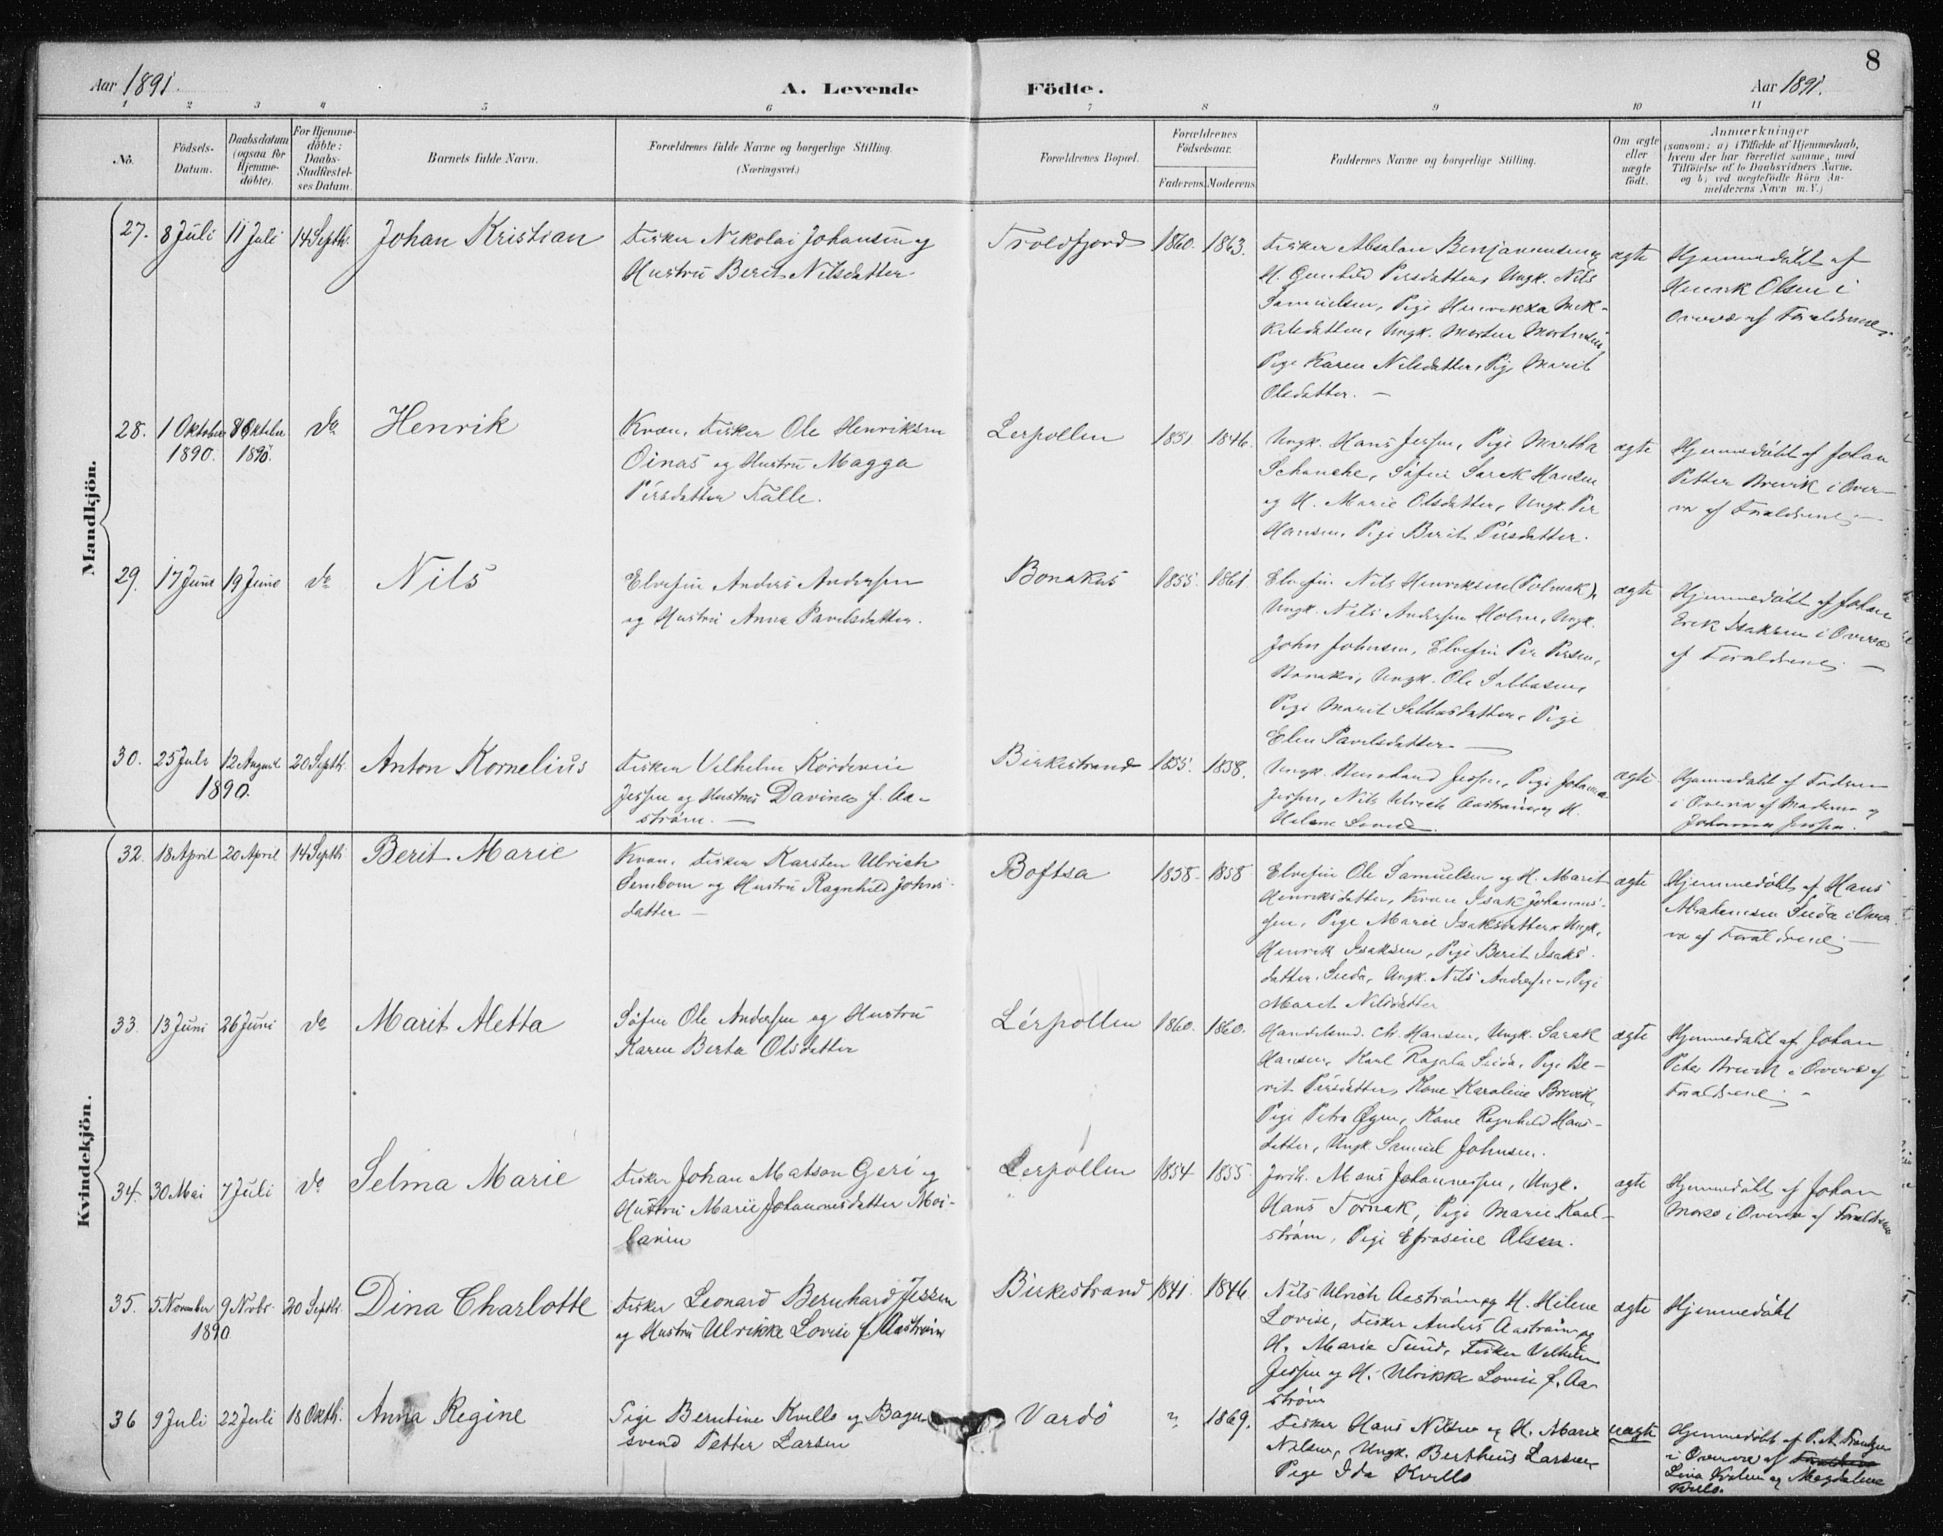 8
Aar 1891.
A. Levende Födte.
Aar 1891.
1 2 3 4 5 6 7 8 9 10 11
No.
Födsels-Datum.
Daabsdatum (ogsaa for Hjemme-döbte).
For Hjemme-döbte: Daabs-Stadfæstel-ses Datum.
Barnets fulde Navn.
Forældrenes fulde Navne og borgerlige Stilling.
(Næringsvei.)
Forældrenes Bopæl.
Forældrenes Födselsaar.
Faderens. Moderens.
Faddernes Navne og borgerlige Stilling.
Om ægte eller uægte födt.
Anmærkninger
(saasom: a) i Tilfælde af Hjemmedaab, hvem der har forrettet samme, med Tilföielse af to Daabsvidners Navne, og b) ved uægtefödte Börn An-melderens Navn m. V.)
Mandkjön.
27. 8 Juli 11 Juli 14 Septbr. Johan Kristian
Fisker Nikolai Johansen og
Hustru Berit Nilsdatter
Troldfjord 1860. 1863.
Fisker Absalon Benjaminsen og
H. Gunhild Persdatter, Ungk. Nils
Samuelsen, Pige Henrikka Mik-
kelsdatter, Ungk. Morten Mortensen,
Pige Karen Nilsdatter, Pige Marit
Olsdatter. —
ægte
Hjemmedöbt af
Henrik Olsen i
Overvær af Forældrene.
28. 1 Oktober 8 Oktober do Henrik
1890. 1890.
Kvæn, Fisker Ole Henriksen
Oinas og Hustru Magga
Persdatter Falle.
Lerpollen 1851. 1846.
Ungk. Hans Jessen, Pige Martha
Schanche, Söfin Sarek Hansen
og H. Marie Olsdatter, Ungk. Per
Hansen, Pige Berit Persdatter.
ægte
Hjemmedöbt af Johan
Petter Brevik i Over-
vær af Forældrene. —
29. 17 Juni 19 Juni do Nils
Elvefin Anders Andersen
og Hustru Anna Pavelsdatter.
Bonakas 1855. 1861.
Elvefin Nils Henriksen (Polmak),
Ungk. Nils Andersen Holm, Ungk.
John Johnsen, Elvefin Per Persen,
Bonakas, Ungk. Ole Sabbasen,
Pige Marit Sabbasdatter, Pige
Elen Pavelsdatter. —
ægte
Hjemmedöbt af Johan
Erik Isaksen i Overvær
af Forældrene. —
30. 25 Juli 12 August 20 Septbr. Anton Kornelius
1890.
Fisker Vilhelm
Jessen og Hustru Davina f. Aa-
strøm. —
Birkestrand 1855. 1858.
Ungk. Bernhard Jessen, Pige Johanna
Jessen, Nils Ulrich Aastrøm og H.
Helene Lovise.
ægte
Hjemmedöbt af Faderen
i Overvær af Moderen og
Johanna Jessen.
Kvindekjön.
32. 18 April 20 April 14 Septbr. Berit Marie
Kvæn, Fisker Karsten Ulrich
Sembom og Hustru Ragnhild Johns-
datter —
Boftsa 1858. 1858
Elvefin Ole Samuelsen og H. Marit
Henriksdatter, Kvæn Isak Johannes-
sen, Pige Marie Isaksdatter, Ungk.
Henrik Isaksen, Pige Berit Isaks-
datter Siida, Ungk. Nils Andersen, Pige
Marit Nilsdatter
ægte
Hjemmedöbt af Hans
Abrahamsen Siida i Over-
vær af Forældrene. —
33. 13 Juni 26 Juni do Marit Aletta
Söfin Ole Andersen og Hustru
Karen Berta Olsdatter
Lerpollen 1860. 1860.
Handelsmd. Chr. Hansen, Ungk. Sarak
Hansen, Karl Siida, Pige Be-
rit Persdatter, Kone Karoline Brevik,
Pige Petra Øyen, Kone Ragnhild Hans-
datter, Ungk. Samuel Johnsen.
ægte
Hjemmedöbt af Johan
Peter Brevik i Overvær af
Forældrene. —
34. 30 Mai 7 Juli do Selma Marie
Fisker Johan Matson Geri og
Hustru Marie Johannesdatter Moi-
lanin
Lerpollen 1854 1855.
Jordb. Mans Johannessen, Ungk.
Hans Tornak, Pige Marie Kaal-
strøm, Pige Efrosine Olsen.
ægte
Hjemmedöbt af Johan
i Overvær af Forældrene
35. 5 November 9 Novbr. 20 Septbr. Dina Charlotte
1890
Fisker Leonard Bernhard Jessen
og Hustru Ulrikke Lovise f. Aastrøm
Birkestrand 1841. 1846.
Nils Ulrich Aastrøm og H. Helene
Lovise, Fisker Anders Aastrøm og
H. Marie Sund, Fisker Vilhelm
Jessen og H. Ulrikke Lovise f. Aa-
strøm
ægte
Hjemmedöbt
36 9 Juli 22 Juli 18 Oktbr. Anna Regine
Pige Berntine Kvello og Bager-
svend Petter Larsen
Vardö " 1869.
Fisker Hans Nilsen og H. Marie
Nilsen, Ungk. Bertheus Larsen,
Pige Ida Kvello
uægte
Hjemmedöbt af P. A.
i Overvær af Forældrene
Lina og Magdalena
Kvello.